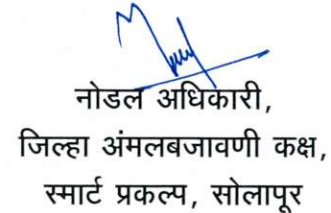 नोडल अधिकारी,
जिल्हा अंमलबजावणी कक्ष,
स्मार्ट प्रकल्प, सोलापूर